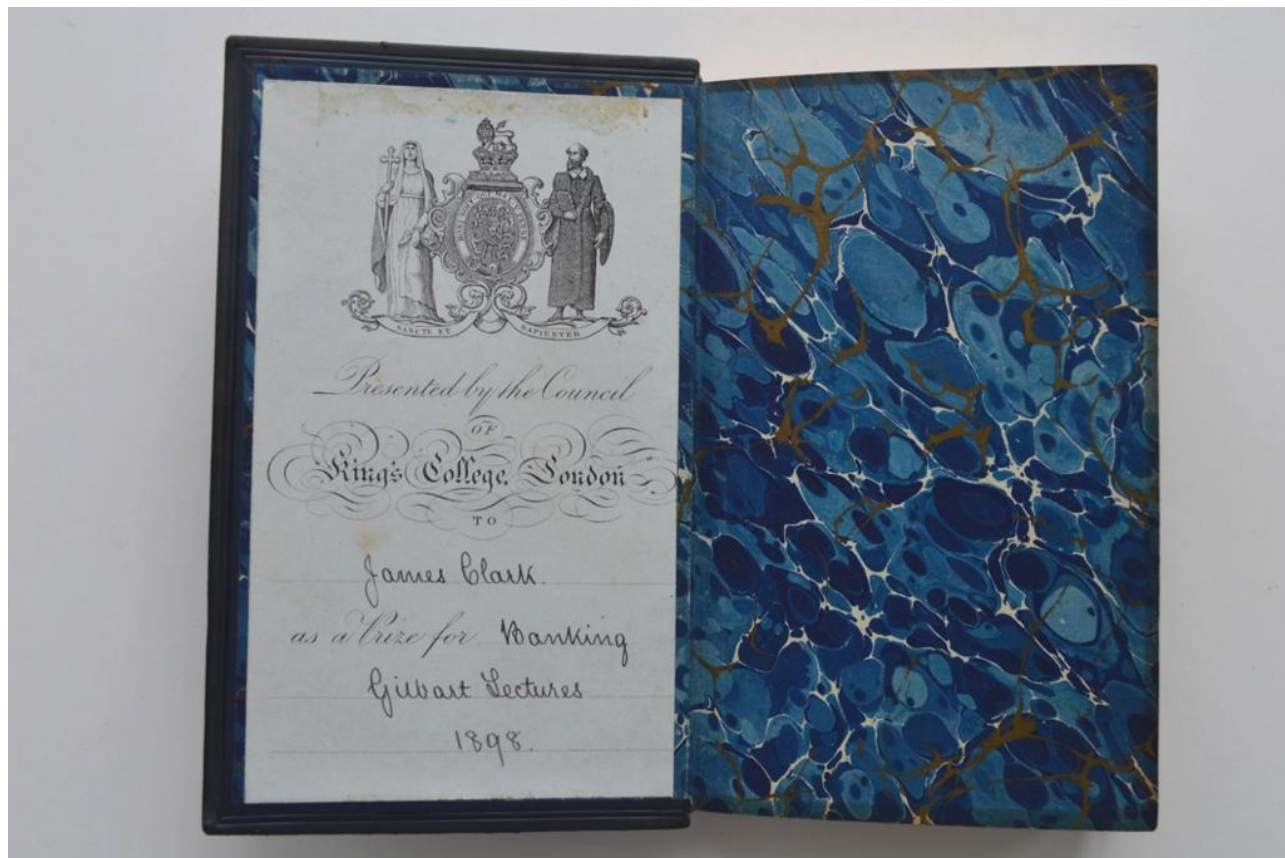 SANCTE ET SAPIENTER
Presented by the Council
OF
King's College, London
TO
James Clark.
as a Prize for Banking
Gilbart Lectures
1898.